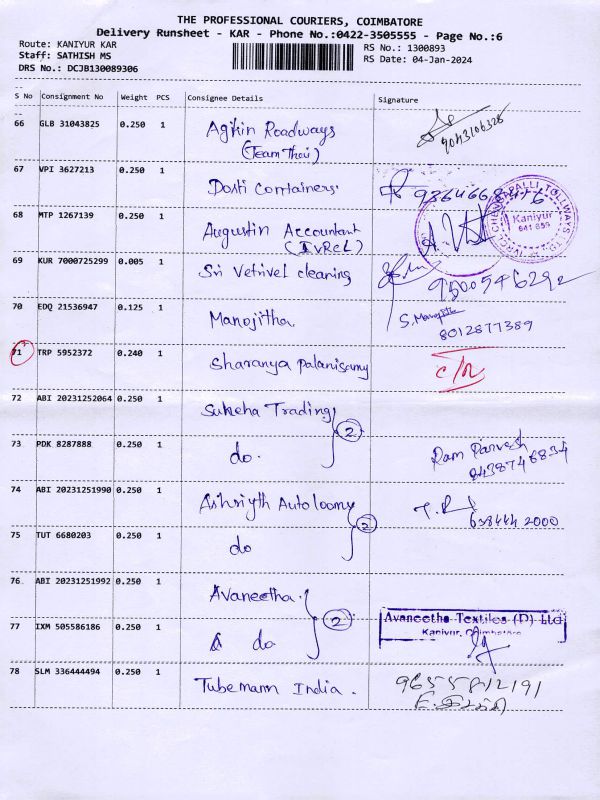 THE PROFESSIONAL COURIERS, COIMBATORE
Delivery Runsheet - KAR - Phone No.:0422-3505555 - Page No.:6
Route: KANIYUR KAR
RS No.: 1300893
Staff: SATHISH MS
RS Date: 04-Jan-2024
DRS No.: DCJB130089306
S No Consignment No Weight PCS Consignee Details Signature
66 GLB 31043825 0.250 1 Agikin Roadways
(Team Thai) 9043106328
67 VPI 3627213 0.250 1 Dosti Containers 9364668446
68 MTP 1267139 0.250 1 Augustin Accountant
(IVRCL)
TOLLWAYS LTD
Kaniyur
641 659
69 KUR 7000725299 0.005 1 Sri Vetrivel clearing 9500546292
70 EDQ 21536947 0.125 1 Manojitha. S. Manojitha
8012877389
71 TRP 5952372 0.240 1 Sharanya Palanisamy
72 ABI 20231252064 0.250 1 Suksha Trading
2
73 PDK 8287888 0.250 1 do. Ram Parvesh
8438746834
74 ABI 20231251990 0.250 1
2 638444 2000
75 TUT 6680203 0.250 1 do
76 ABI 20231251992 0.250 1 Avaneetha.
2 Avaneetha Textiles (P) Ltd
Kaniyur, Coimbatore
77 IXM 505586186 0.250 1 do
78 SLM 336444494 0.250 1 Tubemann India. 9655812191